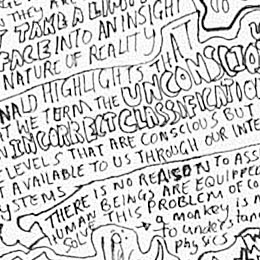 THEY ARE
TAKE A LIMIT
FACE INTO AN INSIGHT
NATURE OF REALITY
NALD HIGHLIGHTS THAT
WE TERM THE UNCONSCIOU
INCORRECT CLASSIFICATION
LEVELS THAT ARE CONSCIOUS BUT
T AVAILABLE TO US THROUGH OUR INTE
YSTEMS
THERE IS NO REASON TO ASS
HUMAN BEINGS ARE EQUIPPED
SOLVE THIS PROBLEM OF CO
a monkey is n
to understan
physics